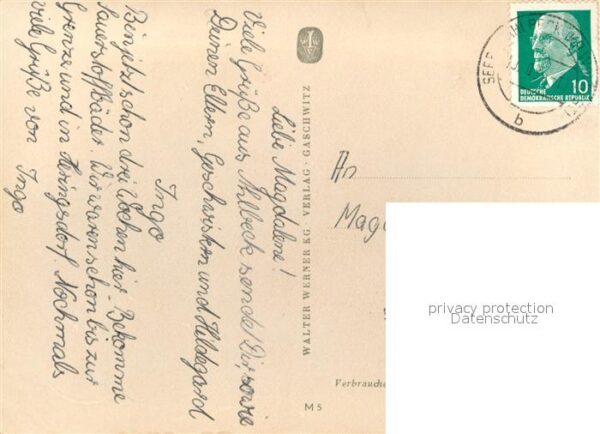 Liebe Magdalene!
Viele Grüße aus Ahlbeck sendet Dir, sowie
Deinen Eltern, Geschwistern und Hildegard
Ingo
Bin jetzt schon drei Wochen hier. Bekomme
Sauerstoffbäder. Wir waren schon bis zur
Grenze und in Heringsdorf. Nochmals
viele Grüße von Ingo
WALTER WERNER KG · VERLAG · GASCHWITZ
M 5
An
Mag
Verbrauche
DEUTSCHE
DEMOKRATISCHE REPUBLIK
10
SEEB
b
privacy protection
Datenschutz